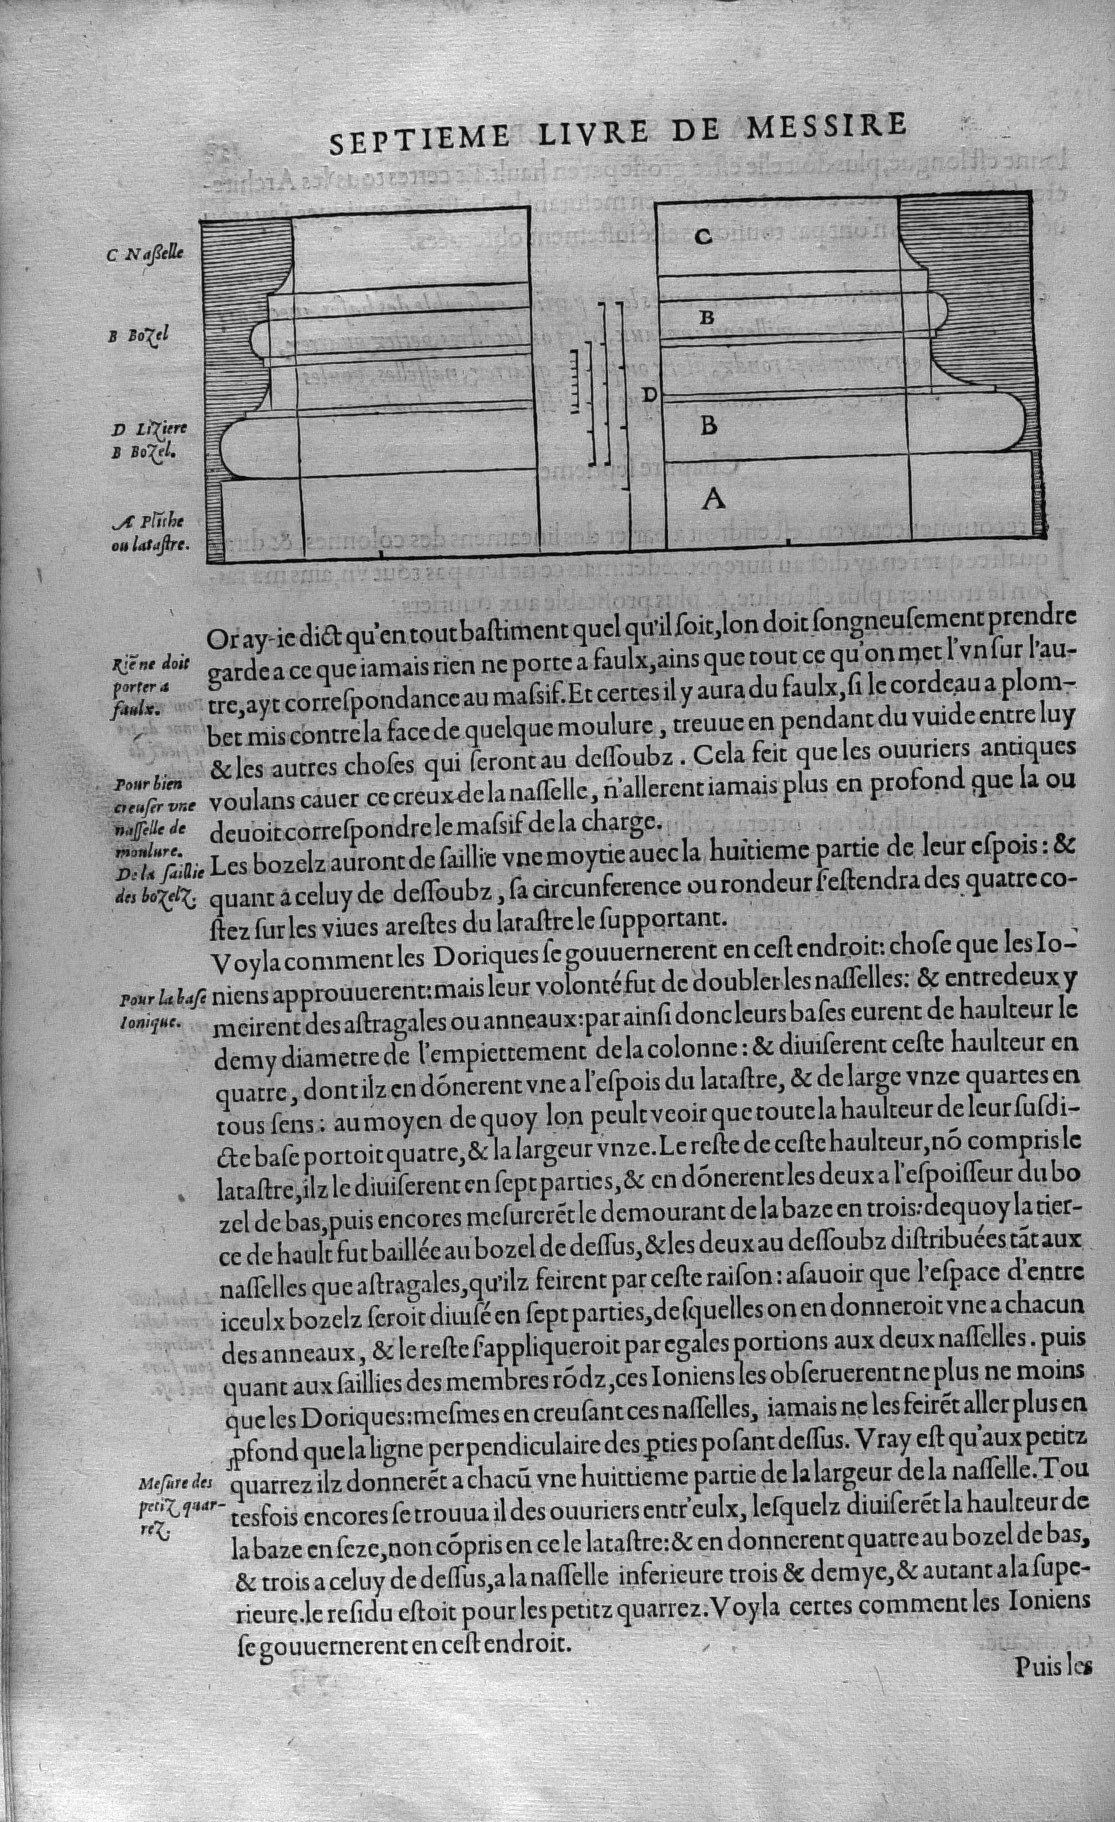 SEPTIEME LIVRE DE MESSIRE
C Naſſelle
B Bozel
D Liziere
B Bozel.
A Plīthe
ou lataſtre.
C
B
D
B
A
Or ay-ie dict qu'en tout baſtiment quel qu'il ſoit, lon doit ſongneuſement prendre
garde a ce que iamais rien ne porte a faulx, ains que tout ce qu'on met l'vn ſur l'au-
tre, ayt correſpondance au maſsif. Et certes il y aura du faulx, ſi le cordeau a plom-
bet mis contre la face de quelque moulure, treuue en pendant du vuide entre luy
& les autres choſes qui ſeront au deſſoubz. Cela feit que les ouuriers antiques
voulans cauer ce creux de la naſſelle, n'allerent iamais plus en profond que la ou
deuoit correſpondre le maſsif de la charge.
Les bozelz auront de ſaillie vne moytie auec la huitieme partie de leur eſpois: &
quant a celuy de deſſoubz, ſa circunference ou rondeur ſ'eſtendra des quatre co-
ſtez ſur les viues areſtes du lataſtre le ſupportant.
Voyla comment les Doriques ſe gouuernerent en ceſt endroit: choſe que les Io-
niens approuuerent: mais leur volonté fut de doubler les naſſelles: & entredeux y
meirent des aſtragales ou anneaux: par ainſi donc leurs baſes eurent de haulteur le
demy diametre de l'empiettement de la colonne: & diuiſerent ceſte haulteur en
quatre, dont ilz en dōnerent vne a l'eſpois du lataſtre, & de large vnze quartes en
tous ſens: au moyen de quoy lon peult veoir que toute la haulteur de leur ſuſdi-
cte baſe portoit quatre, & la largeur vnze. Le reſte de ceſte haulteur, nō compris le
lataſtre, ilz le diuiſerent en ſept parties, & en dōnerent les deux a l'eſpoiſſeur du bo
zel de bas, puis encores meſurerēt le demourant de la baze en trois: dequoy la tier-
ce de hault fut baillée au bozel de deſſus, & les deux au deſſoubz diſtribuées tāt aux
naſſelles que aſtragales, qu'ilz feirent par ceſte raiſon: aſauoir que l'eſpace d'entre
iceulx bozelz ſeroit diuiſé en ſept parties, deſquelles on en donneroit vne a chacun
des anneaux, & le reſte ſ'appliqueroit par egales portions aux deux naſſelles. puis
quant aux ſaillies des membres rōdz, ces Ioniens les obſeruerent ne plus ne moins
que les Doriques: meſmes en creuſant ces naſſelles, iamais ne les feirēt aller plus en
ꝓfond que la ligne perpendiculaire des ꝑties poſant deſſus. Vray eſt qu'aux petitz
quarrez ilz donnerēt a chacū vne huittieme partie de la largeur de la naſſelle. Tou
tesfois encores ſe trouua il des ouuriers entr'eulx, leſquelz diuiſerēt la haulteur de
la baze en ſeze, non cōpris en ce le lataſtre: & en donnerent quatre au bozel de bas,
& trois a celuy de deſſus, a la naſſelle inferieure trois & demye, & autant a la ſupe-
rieure. le reſidu eſtoit pour les petitz quarrez. Voyla certes comment les Ioniens
ſe gouuernerent en ceſt endroit.
Puis les
Riēne doit
porter a
faulx.
Pour bien
creuſer vne
naſſelle de
moulure.
De la ſaillie
des bozelz.
Pour la baſe
Ionique.
Meſure des
petiz quar-
rez.